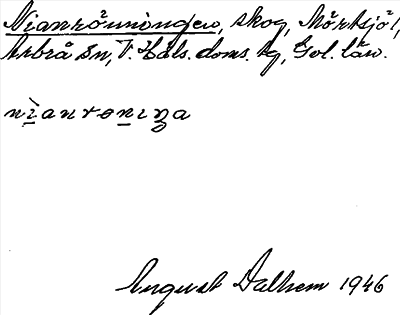 Nianrönningen, skog, Mörtsjö!,
Arbrå sn, V. Häls. doms. tg, Gvl. län.
nìanroniŋa
August Dalhem 1946